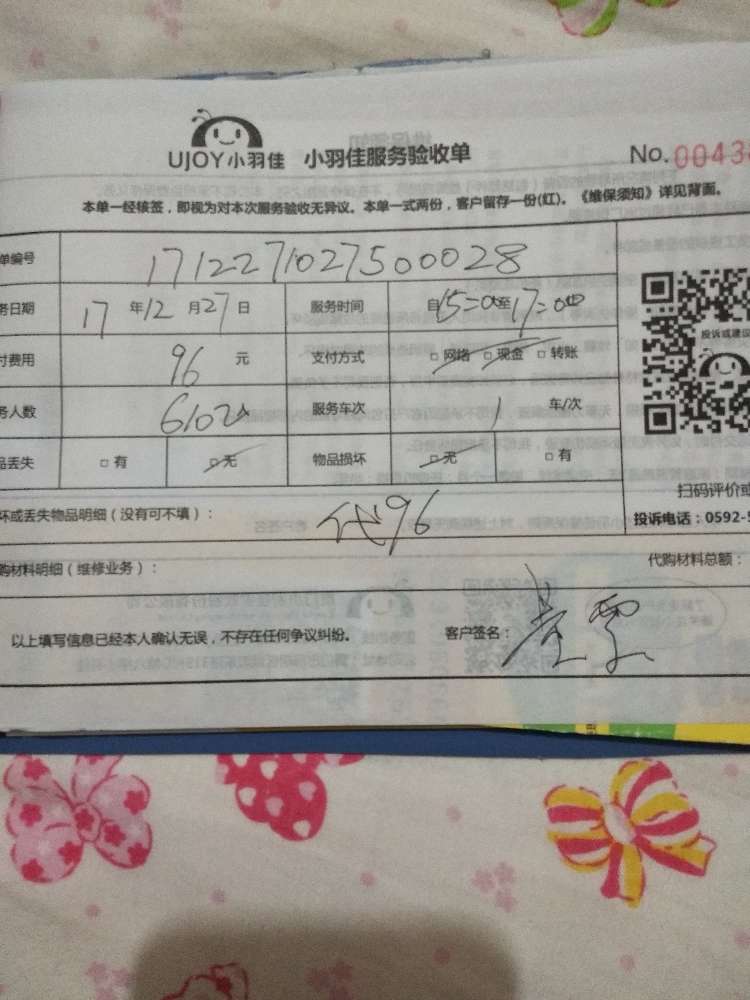 UJOY小羽佳 小羽佳服务验收单 No.0043
本单一经核签，即视为对本次服务验收无异议。本单一式两份，客户留存一份(红)。《维保须知》详见背面。
单编号 171227102750028
务日期 17年12月27日 服务时间 自15:00至17:00
付费用 96元 支付方式 □网络 □现金 □转账
投诉或建议
务人数 服务车次 1 车/次
品丢失 □有 □无 物品损坏 □无 □有
扫码评价或
坏或丢失物品明细（没有可不填）： 代96
投诉电话：0592-5
购材料明细（维修业务）： 代购材料总额：
以上填写信息已经本人确认无误，不存在任何争议纠纷。 客户签名：